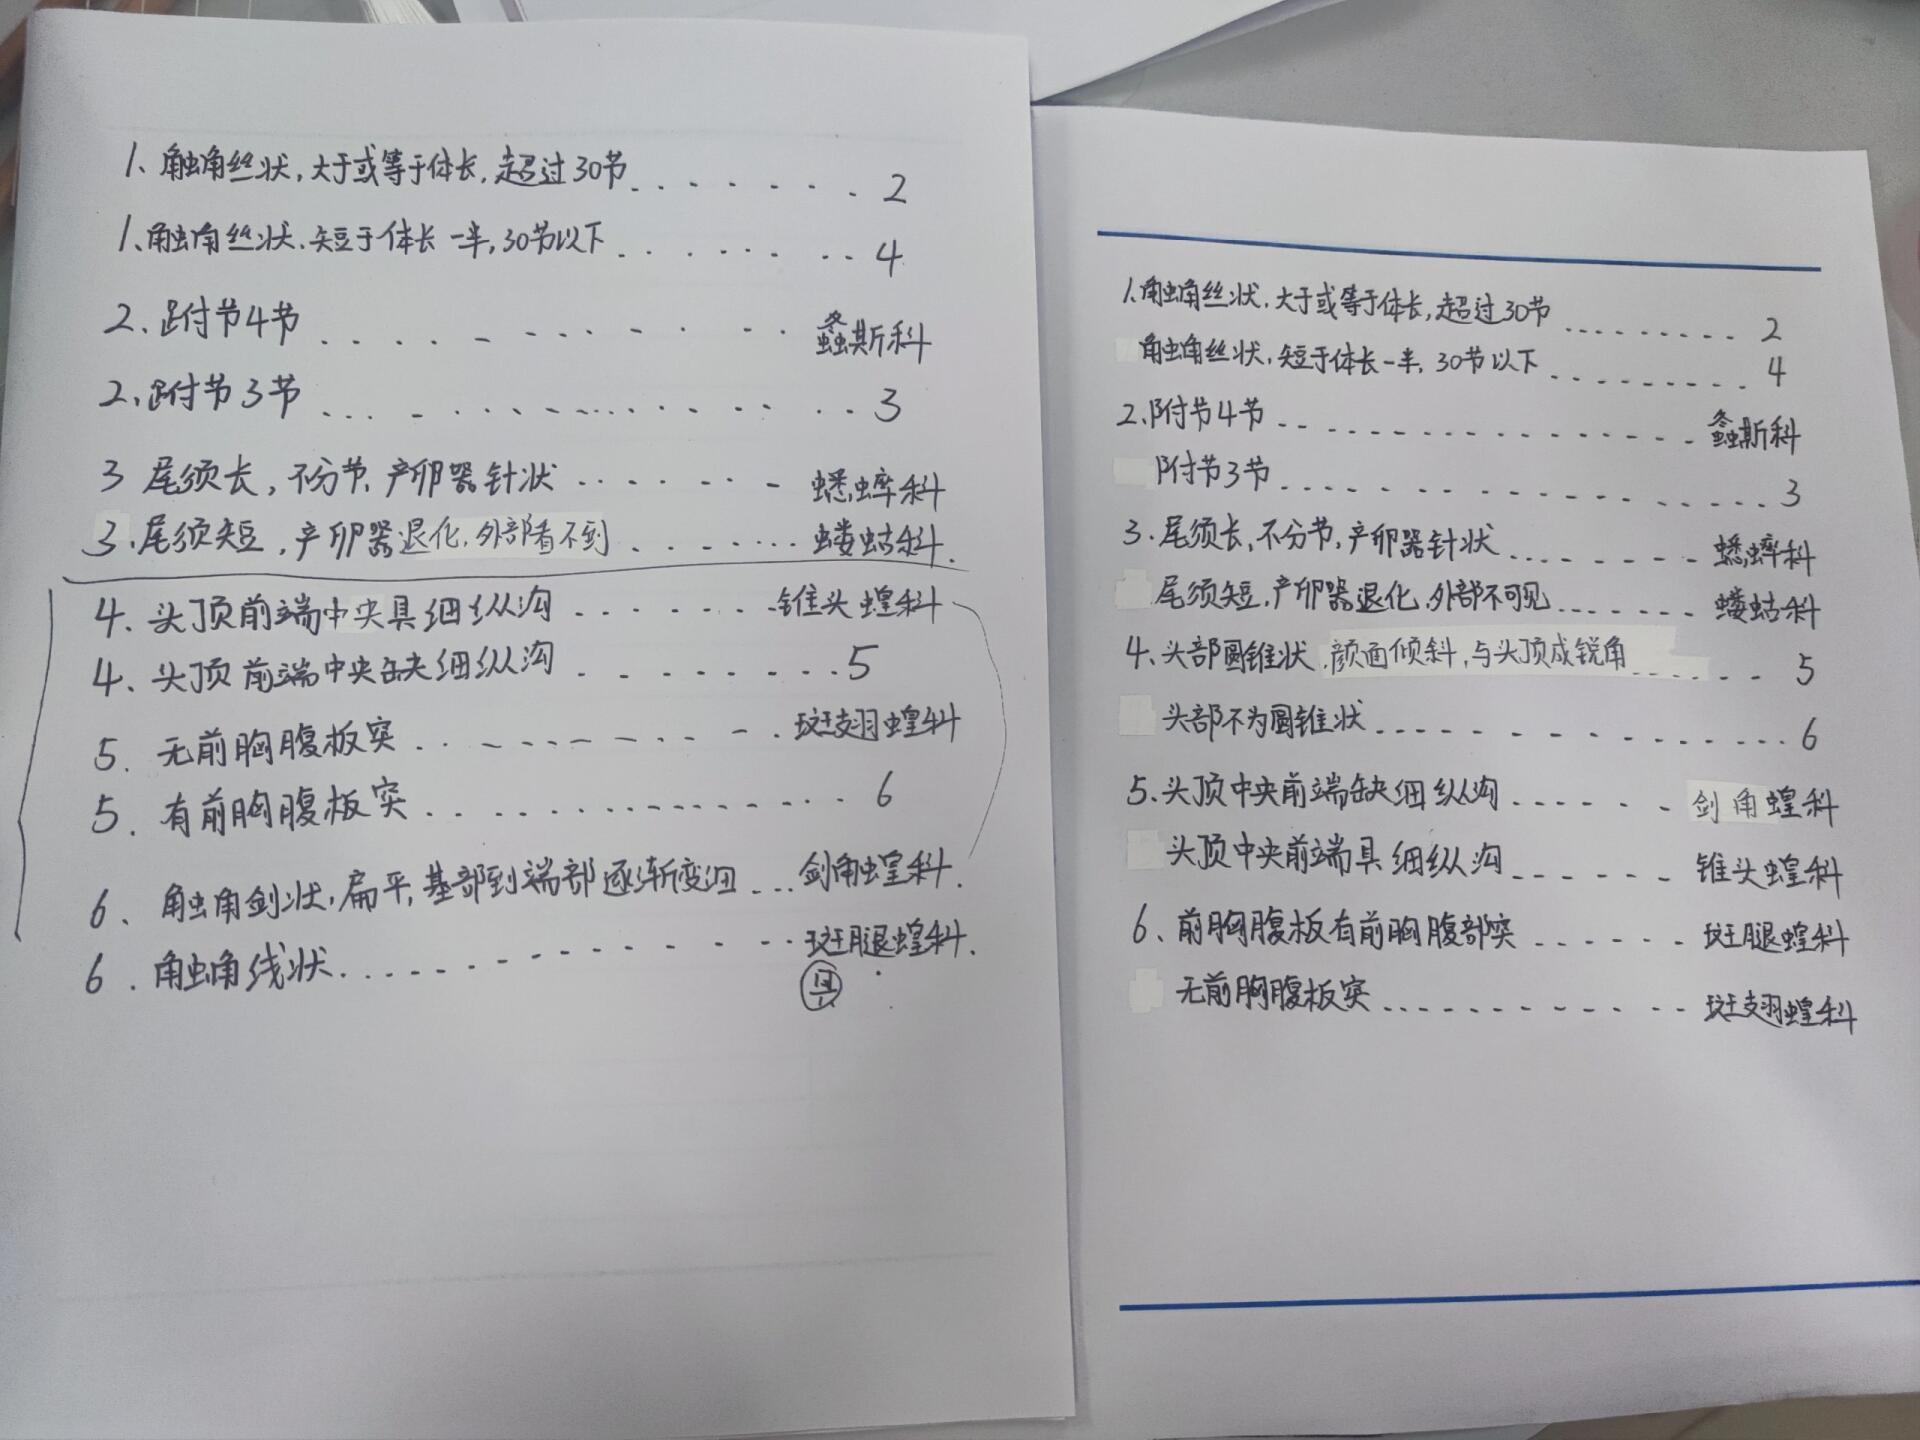 1、触角丝状,大于或等于体长,超过30节.......2
1、触角丝状.短于体长一半,30节以下........4
2、跗节4节..........螽斯科
2、跗节3节..........3
3 尾须长,不分节,产卵器针状......蟋蟀科
3.尾须短,产卵器退化,外部看不到.......蝼蛄科.
4.头顶前端中央具细纵沟.......锥头蝗科
4、头顶前端中央缺细纵沟.......5
5.无前胸腹板突..........斑翅蝗科
5.有前胸腹板突..........6
6.触角剑状,扁平,基部到端部逐渐变细...剑角蝗科.
6.触角线状..........斑腿蝗科.
1.触角丝状.大于或等于体长,超过30节.........2
触角丝状,短于体长一半,30节以下.........4
2.附节4节..........螽斯科
附节3节..........3
3.尾须长,不分节,产卵器针状.......蟋蟀科
尾须短,产卵器退化,外部不可见.......蝼蛄科
4、头部圆锥状,颜面倾斜,与头顶成锐角......5
头部不为圆锥状..........6
5.头顶中央前端缺细纵沟......剑角蝗科
头顶中央前端具细纵沟......锥头蝗科
6、前胸腹板有前胸腹部突......斑腿蝗科
无前胸腹板突..........斑翅蝗科